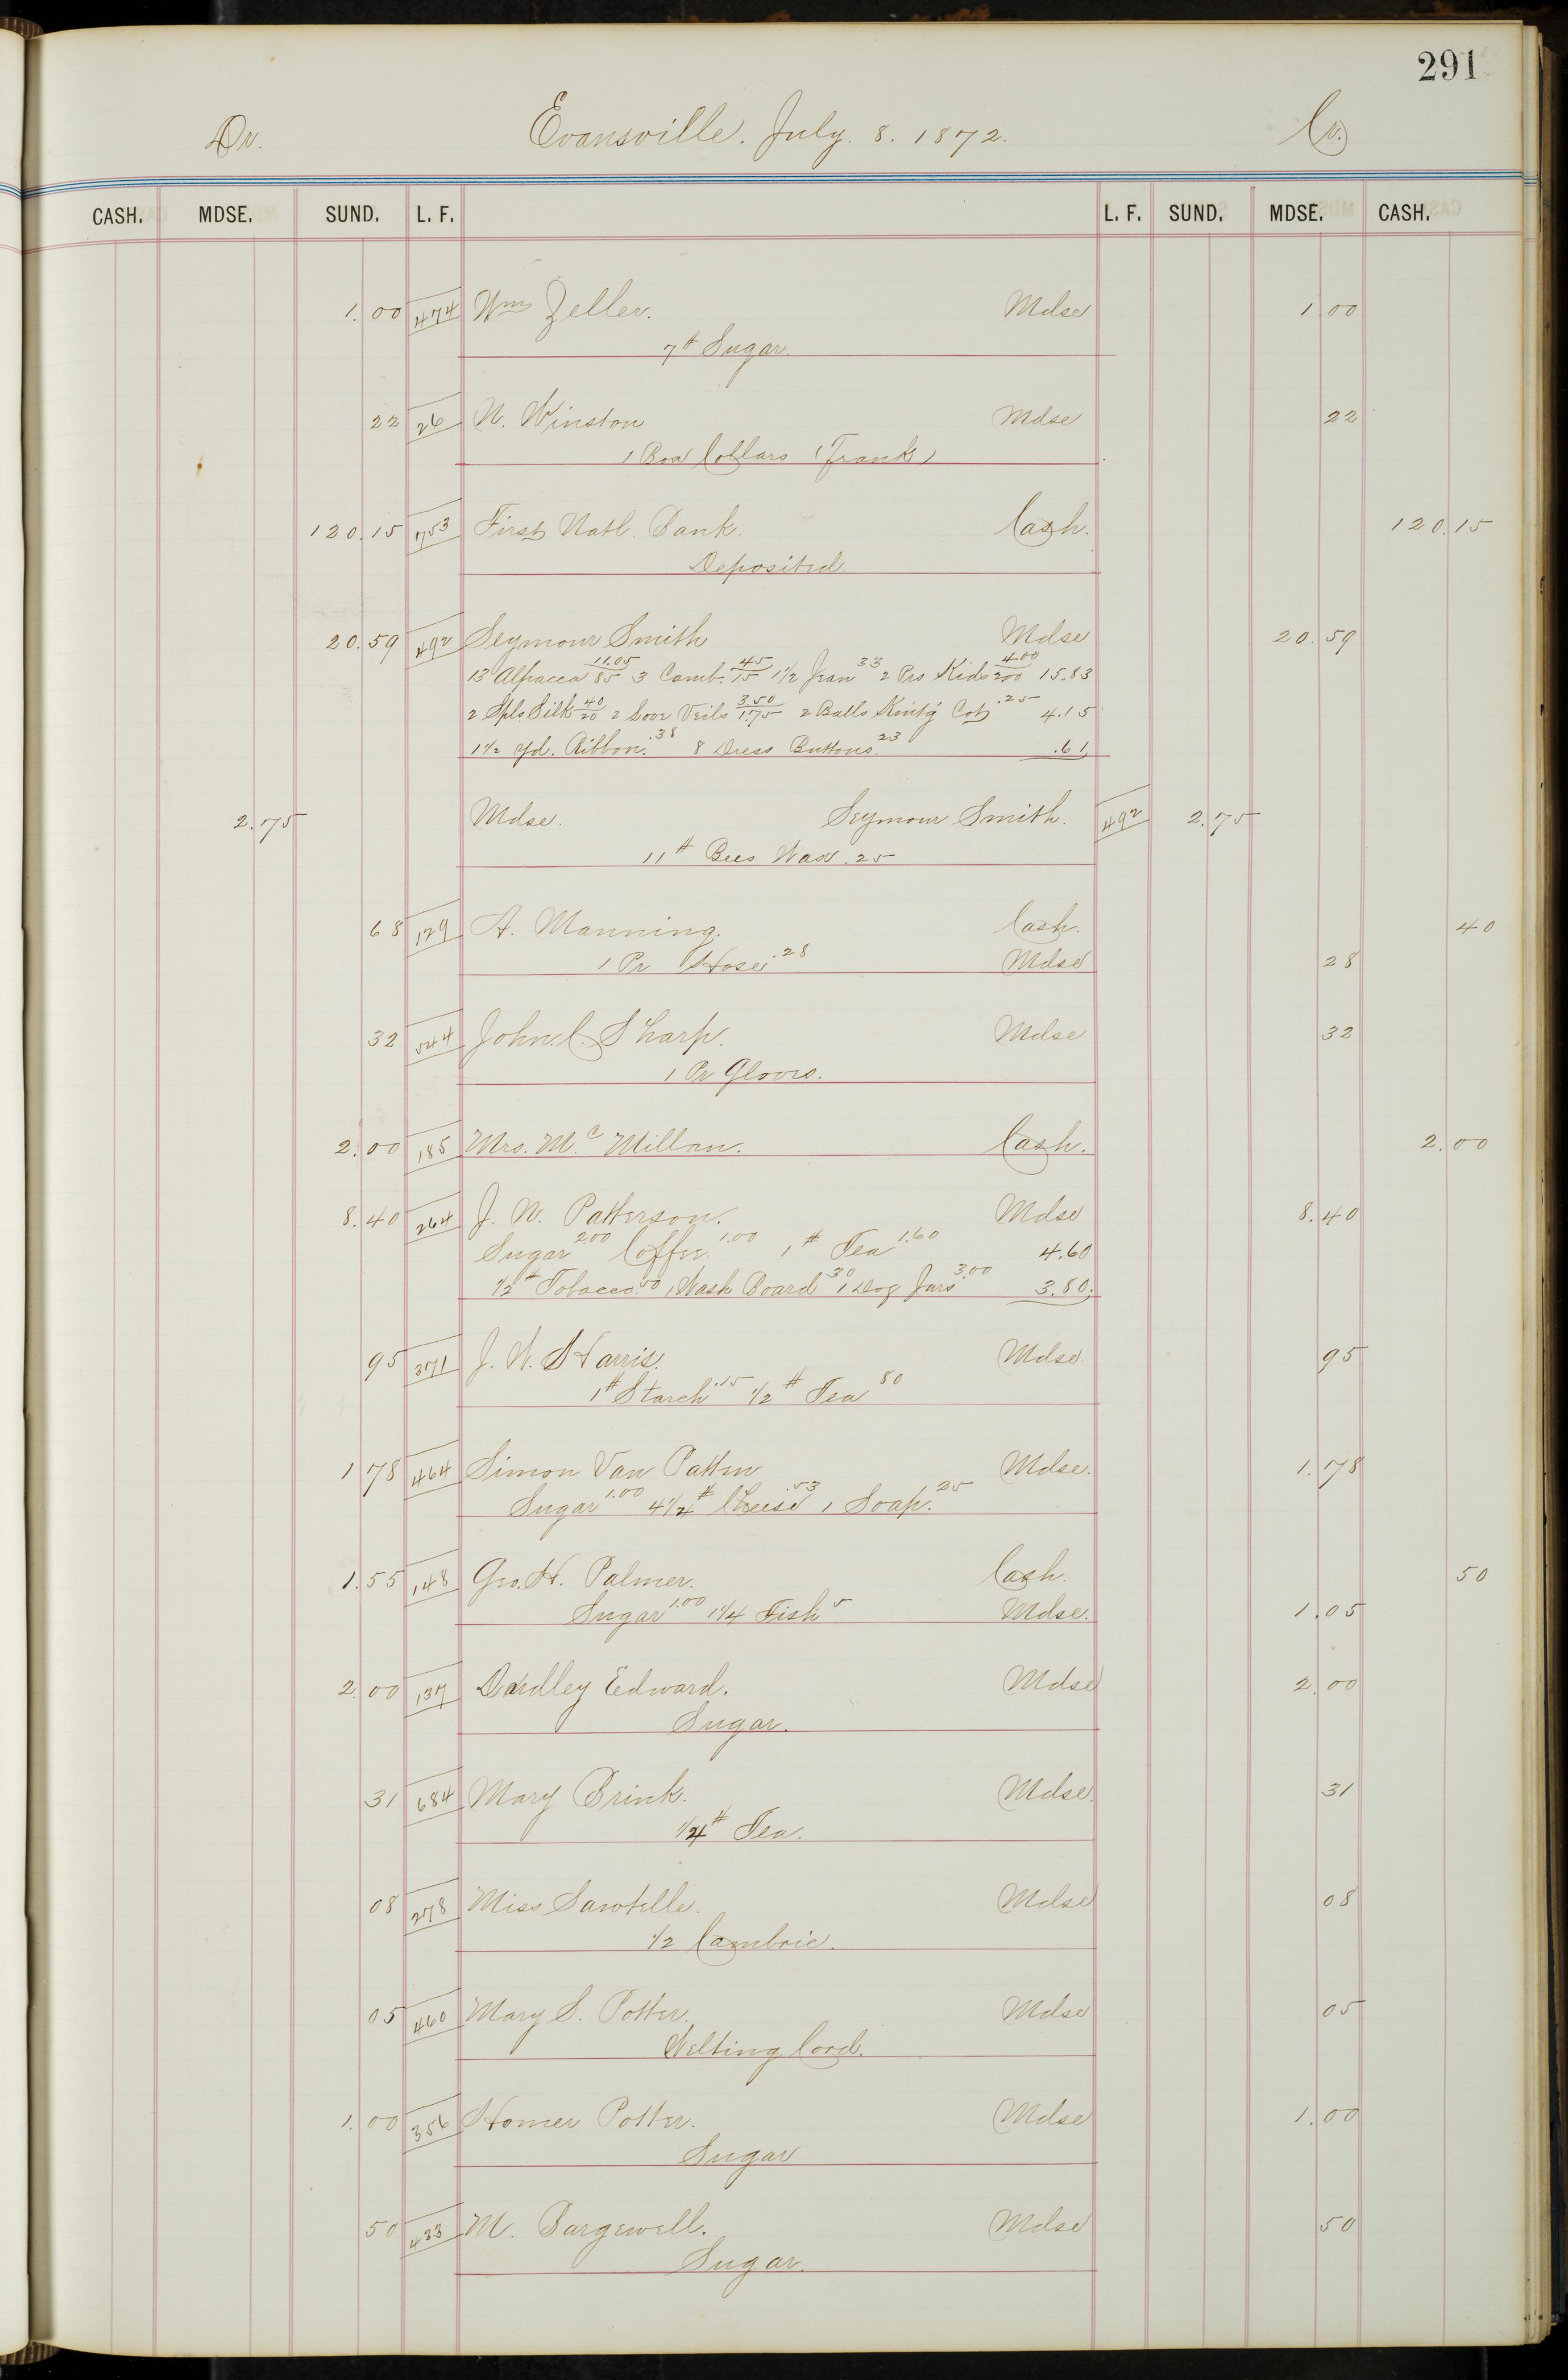 291
Dr. Evansville. July. 8. 1872. Cr.
CASH. MDSE. SUND. L. F. L. F. SUND. MDSE. CASH.
1.00 474 Wm Zeller. Mdse 1.00
7# Sugar.
22 26 N. Winston Mdse 22
1 Box Collars (Frank)
120.15 753 First Natl. Bank. Cash. 120.15
Deposited.
20.59 492 Seymour Smith Mdse 20.59
13 Alpacca 11.05/85 3 Camb. 45/15 1 1/2 Jean 33 2 Prs Kids 4.00/200 15.83
2 Spls Silk 40/20 2 Veils 3.50/1.75 2 Balls Kint'g Cot .25 4.15
1 1/2 yd. Ribbon. .38 8 Dress Buttons. 23 .61
2.75 Mdse. Seymour Smith. 492 2.75
11# Bees Wax .25
68 129 A. Manning. Cash. 40
1 Pr Hose .28 Mdse 28
32 544 John. C. Sharp. Mdse 32
1 Pr Gloves.
2.00 185 Mrs. Mc Millan. Cash. 2.00
8.40 264 J. W. Patterson. Mdse 8.40
Sugar 2.00 Coffee 1.00 1# Tea 1.60 4.60
1/2# Tobacco .50 1 Wash Board 30 1 Doz Jars 3.00 3.80.
95 371 J. W. Harris. Mdse. 95
1# Starch .15 1/2# Tea 80
1 78 464 Simon Van Patten Mdse. 1.78
Sugar 1.00 4 1/4# Cheese .53 1 Soap. 25
1.55 148 Geo. H. Palmer. Cash. 50
Sugar 1.00 1 1/4 Fish 5 Mdse. 1.05
2.00 137 Dardley Edward. Mdse 2.00
Sugar.
31 684 Mary Brink. Mdse. 31
1/4# Tea.
08 278 Miss Sawtelle. Mdse 08
1/2 Cambric.
05 460 Mary S. Potter. Mdse 05
Welting Cord.
1.00 356 Homer Potter. Mdse 1.00
Sugar
50 433 M. Bargewell. Mdse 50
Sugar.